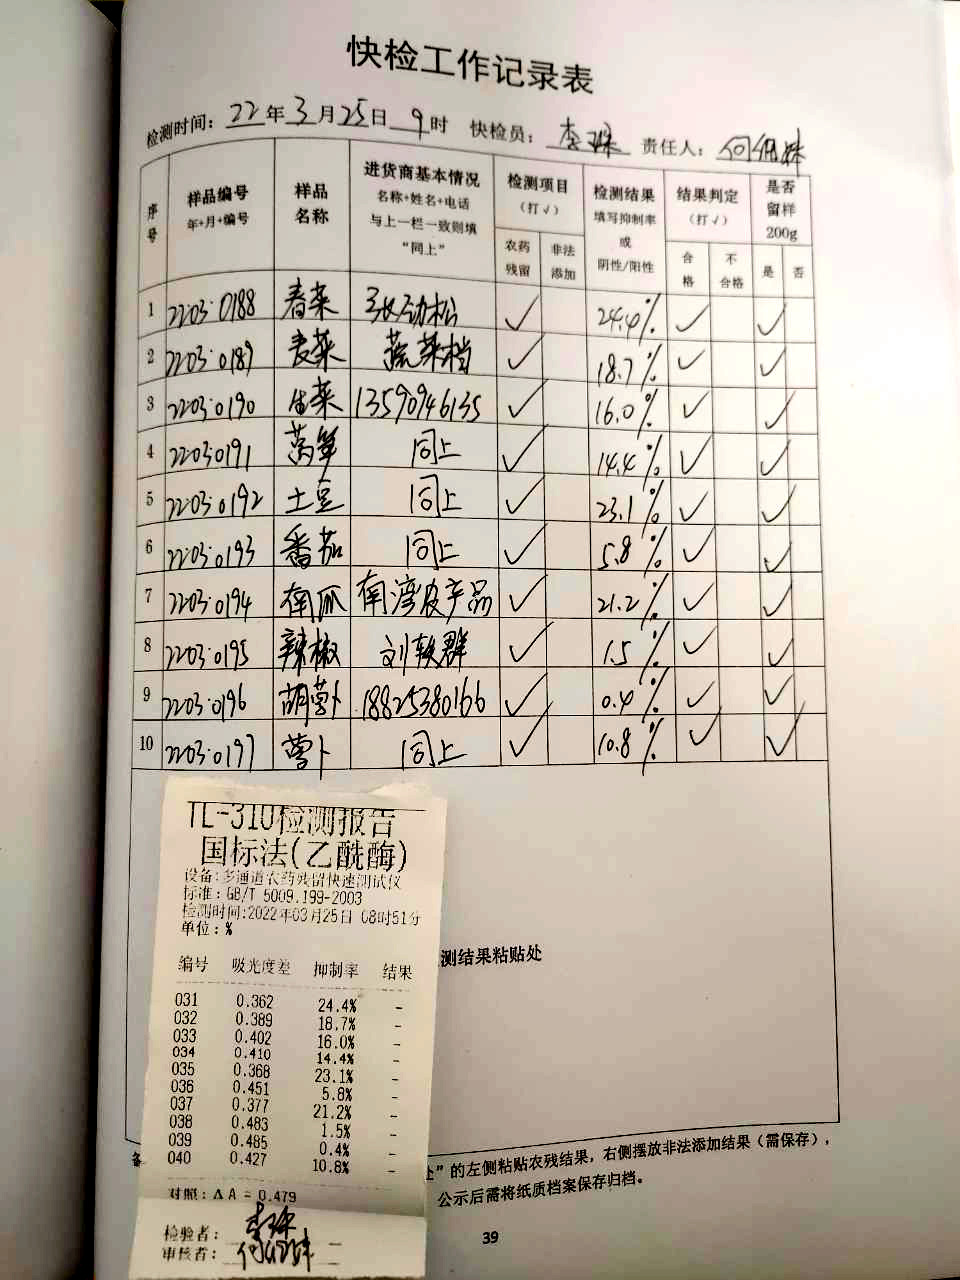 快检工作记录表
检测时间：22年3月25日9时 快检员：李 责任人：何
序号 样品编号 年+月+编号 样品名称 进货商基本情况 名称+姓名+电话 与上一栏一致则填“同上” 检测项目（打√） 检测结果 填写抑制率或阴性/阳性 结果判定（打√） 是否留样200g
农药残留 非法添加 合格 不合格 是 否
1 2203·0188 春菜 张劲松 √ 24.4% √ √
2 2203·0189 麦菜 蔬菜档 √ 18.7% √ √
3 2203·0190 生菜 13590946135 √ 16.0% √ √
4 2203·0191 莴笋 同上 √ 14.4% √ √
5 2203·0192 土豆 同上 √ 23.1% √ √
6 2203·0193 番茄 同上 √ 5.8% √ √
7 2203·0194 南瓜 南湾农产品 √ 21.2% √ √
8 2203·0195 辣椒 刘轶群 √ 1.5% √ √
9 2203·0196 胡萝卜 18825380166 √ 0.4% √ √
10 2203·0197 萝卜 同上 √ 10.8% √ √
TL-310检测报告
国标法(乙酰酶)
设备:多通道农药残留快速测试仪
标准：GB/T 5009.199-2003
检测时间:2022年03月25日 08时51分
单位：%
测结果粘贴处
编号 吸光度差 抑制率 结果
031 0.362 24.4% -
032 0.389 18.7% -
033 0.402 16.0% -
034 0.410 14.4% -
035 0.368 23.1% -
036 0.451 5.8% -
037 0.377 21.2% -
038 0.483 1.5% -
039 0.485 0.4% -
040 0.427 10.8% -
对照：ΔA = 0.479
检验者：李
审核者：何
”的左侧粘贴农残结果，右侧摆放非法添加结果（需保存），
公示后需将纸质档案保存归档。
39